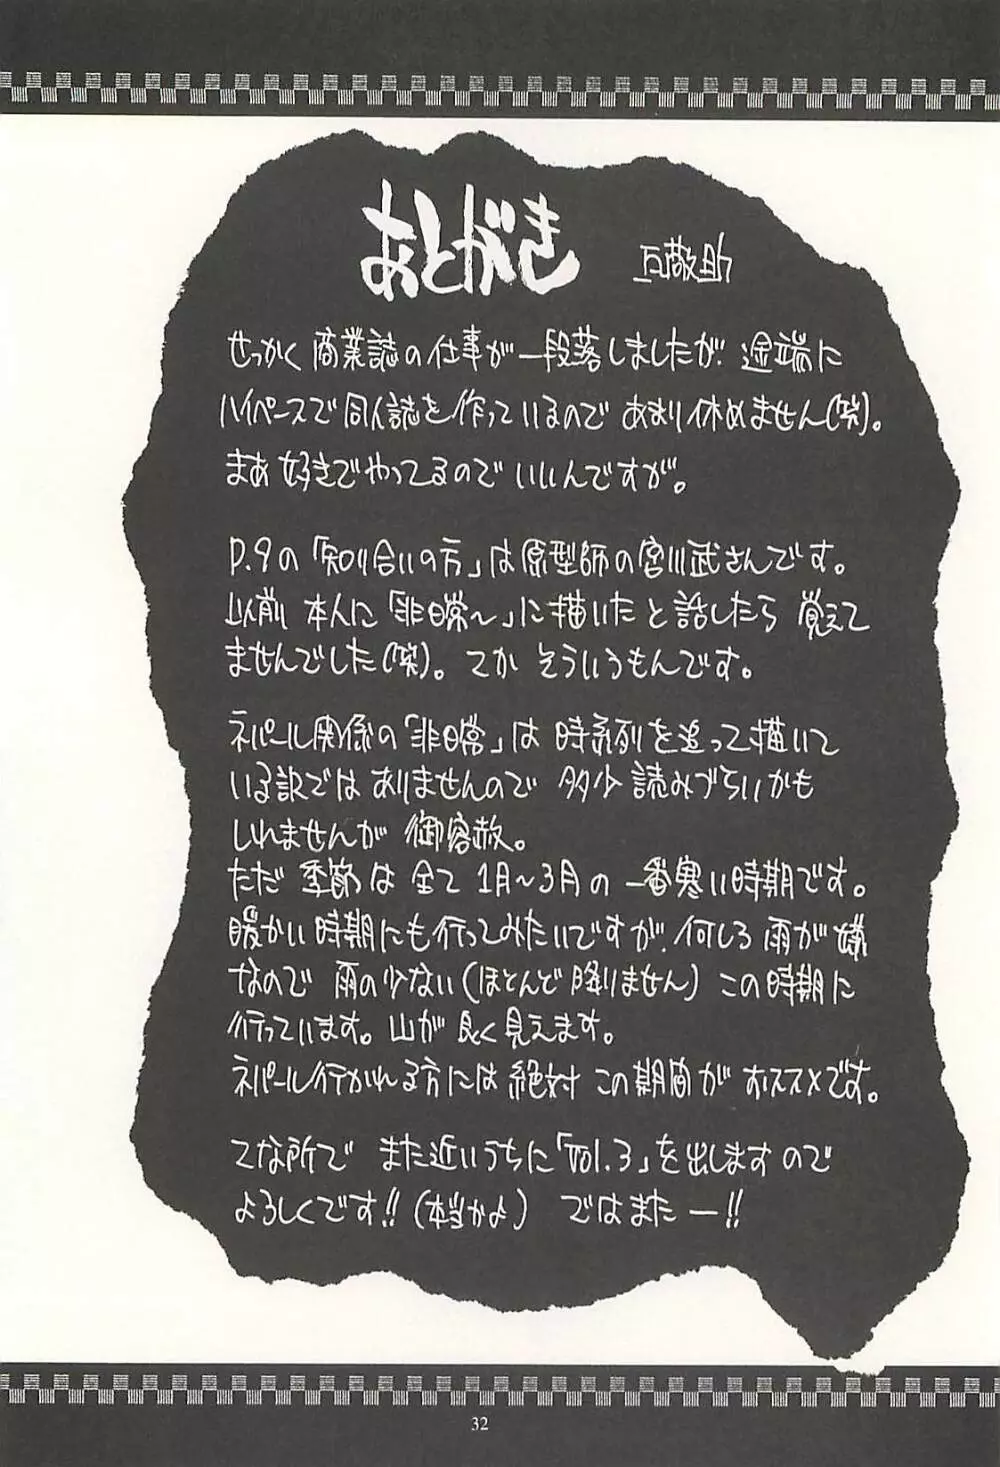 あとがき 瓦敬助
せっかく商業誌の仕事が一段落しましたが、途端に
ハイペースで同人誌を作っているのであまり休めません(笑)。
まあ好きでやってるのでいいんですが。
P.9の「知り合いの方」は原型師の宮川武さんです。
以前本人に「非日常〜」に描いたと話したら覚えて
ませんでした(笑)。てかそういうもんです。
ネパール関係の「非日常」は時系列を追って描いて
いる訳ではありませんので多少読みづらいかも
しれませんが御容赦。
ただ季節は全て1月〜3月の一番寒い時期です。
暖かい時期にも行ってみたいですが、何しろ雨が嫌
なので雨の少ない(ほとんど降りません)この時期に
行っています。山が良く見えます。
ネパール行かれる方には絶対この期間がおススメです。
てな所でまた近いうちに「Vol.3」を出しますので
よろしくです!!(本当かよ) ではまたー!!
32